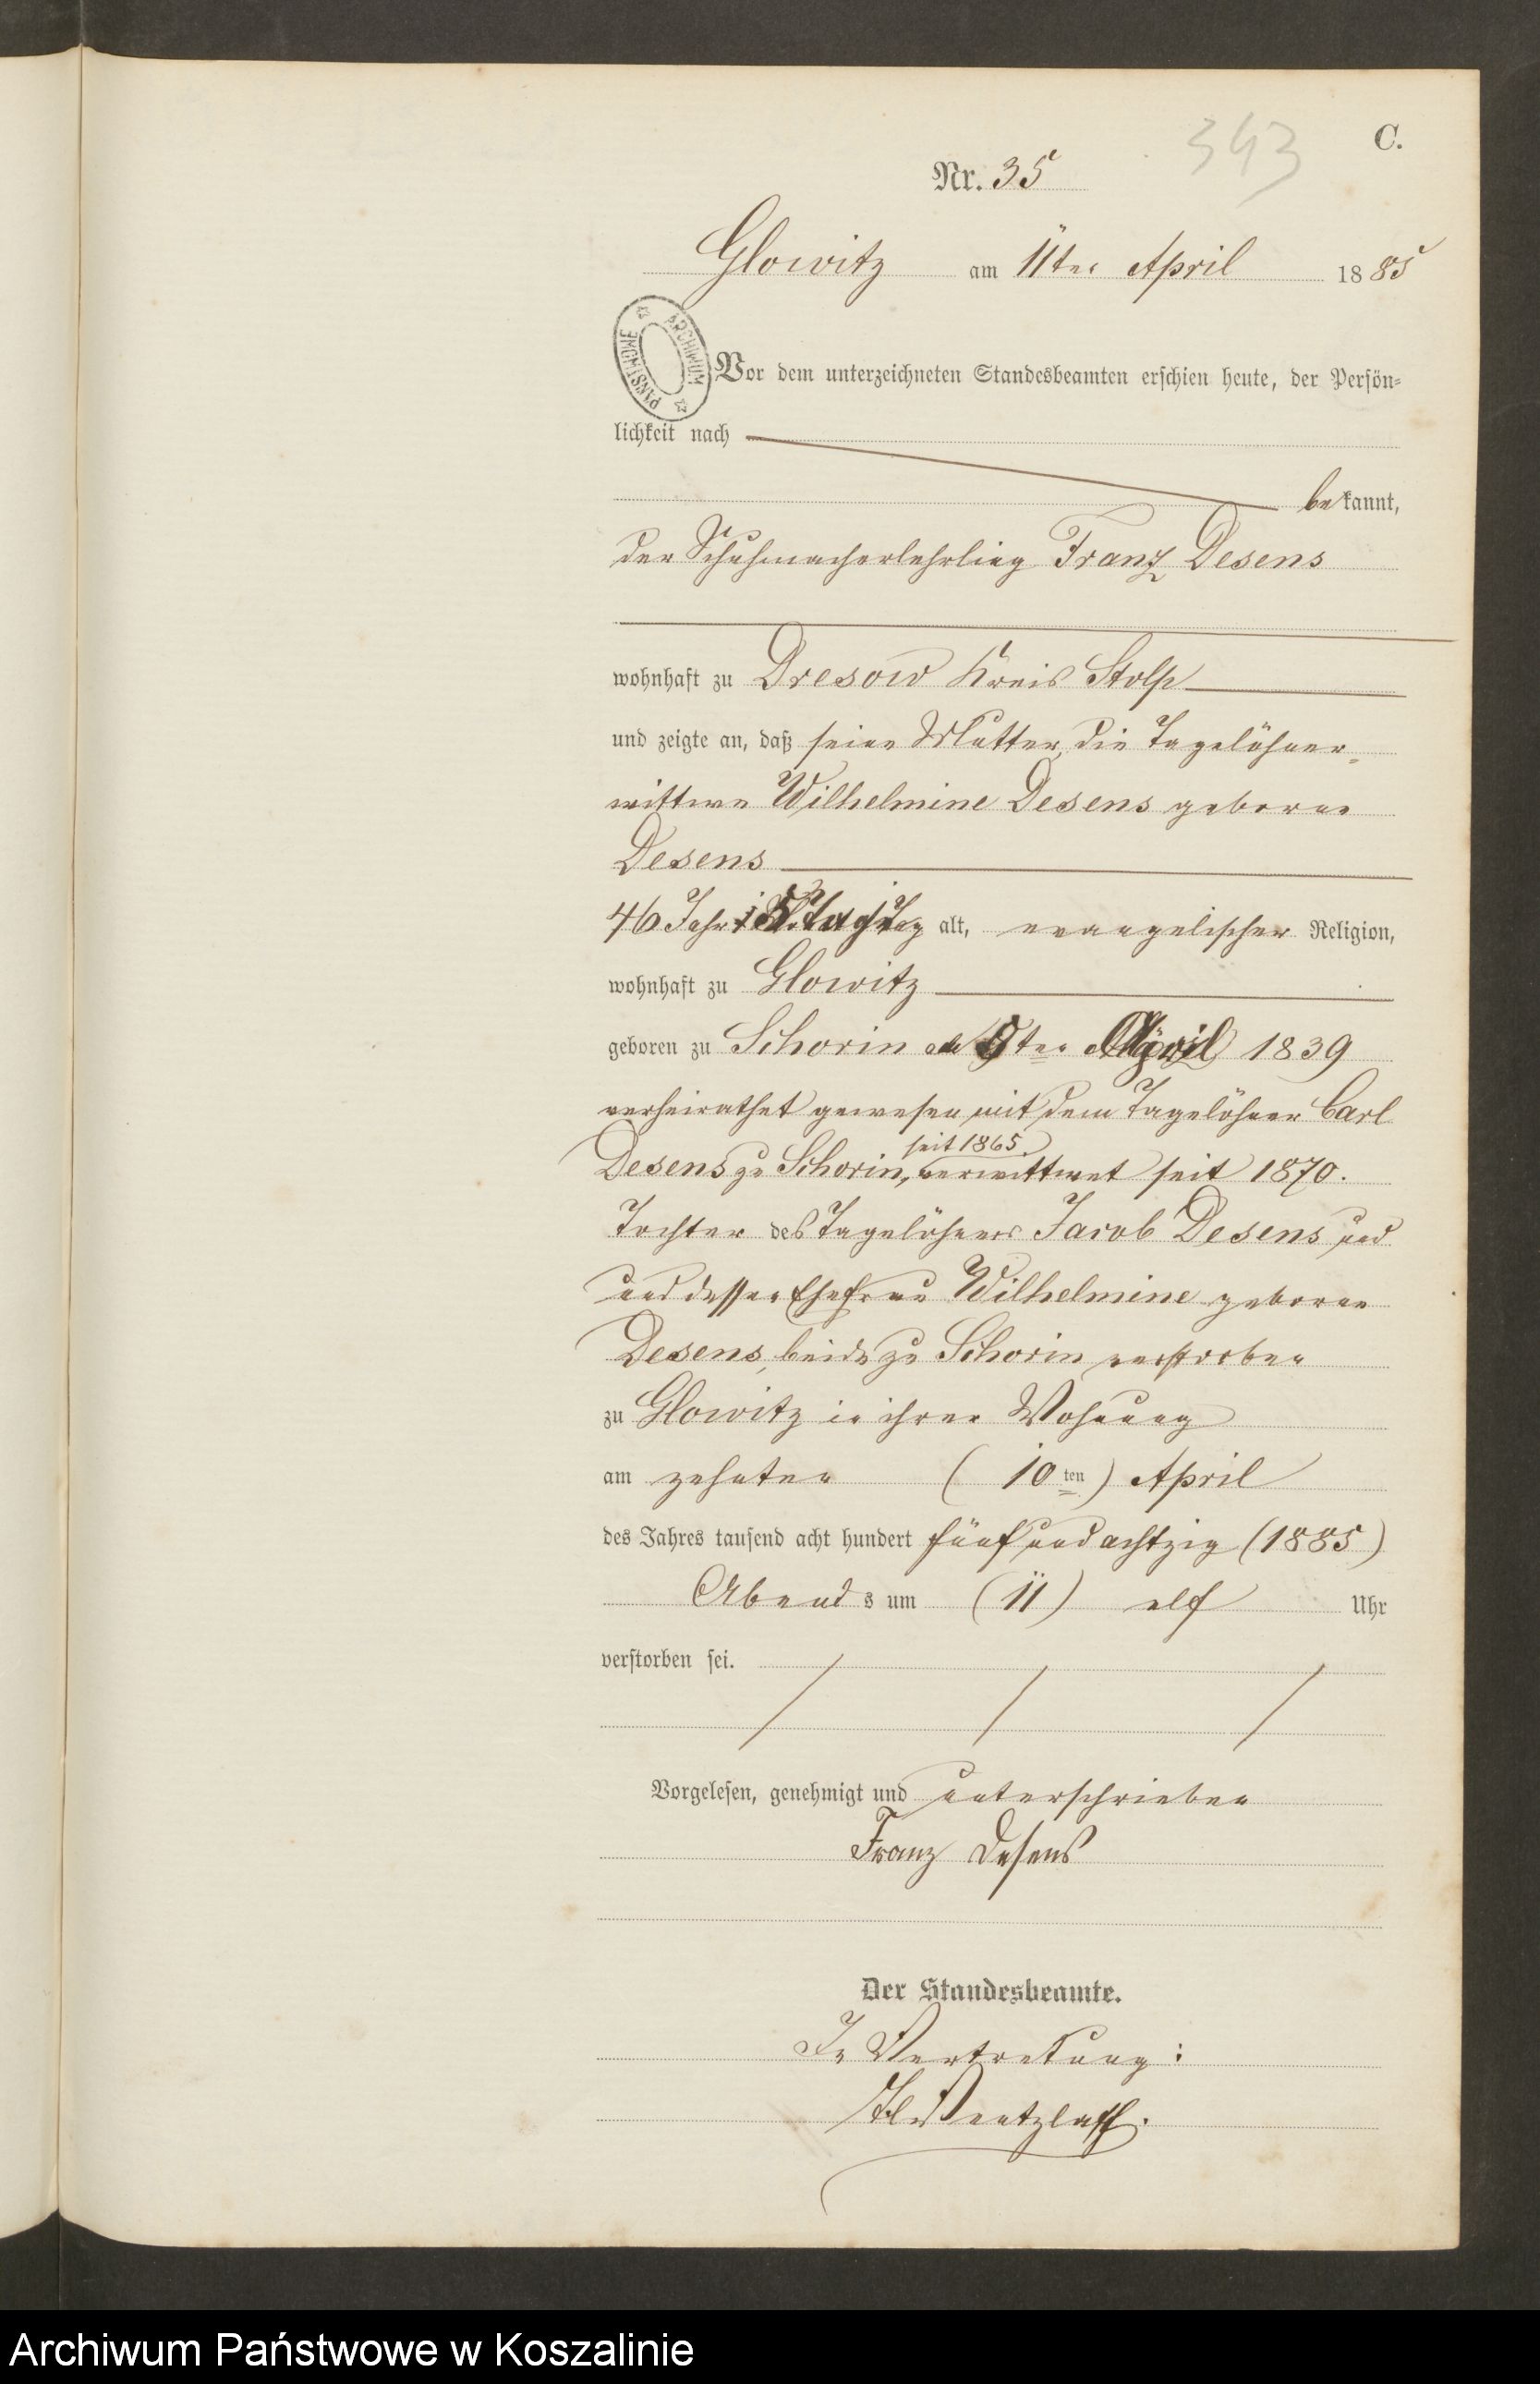 343
C.
Nr. 35
Glowitz am 11ten April 1885
ARCHIWUM PAŃSTWOWE
Vor dem unterzeichneten Standesbeamten erschien heute, der Persön=
lichkeit nach
bekannt,
der Schuhmacherlehrling Franz Desens
wohnhaft zu Dresow Kreis Stolp
und zeigte an, daß seine Mutter, die Tagelöhner=
wittwe Wilhelmine Desens geborne
Desens
46 Jahr Tag alt, evangelischer Religion,
wohnhaft zu Glowitz
geboren zu Schorin ten April 1839
verheirathet gewesen mit dem Tagelöhner Carl
seit 1865.
Desens zu Schorin, verwittwet seit 1870.
Tochter des Tagelöhners Jacob Desens und
und dessen Ehefrau Wilhelmine geborne
Desens, beide zu Schorin verstorben
zu Glowitz in ihrer Wohnung
am zehnten (10ten) April
des Jahres tausend acht hundert fünf und achtzig (1885)
Abends um (11) elf Uhr
verstorben sei.
Vorgelesen, genehmigt und unterschrieben
Franz Desens
Der Standesbeamte.
In Vertretung:
Archiwum Państwowe w Koszalinie